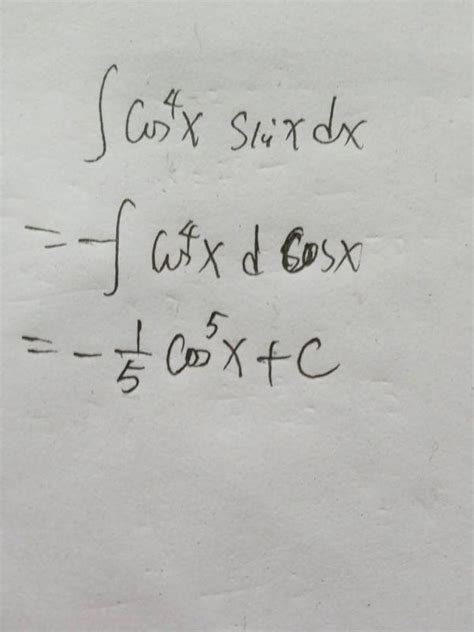 ∫ cos⁴x sinx dx
= -∫ cos⁴x d cosx
= - 1/5 cos⁵x + C